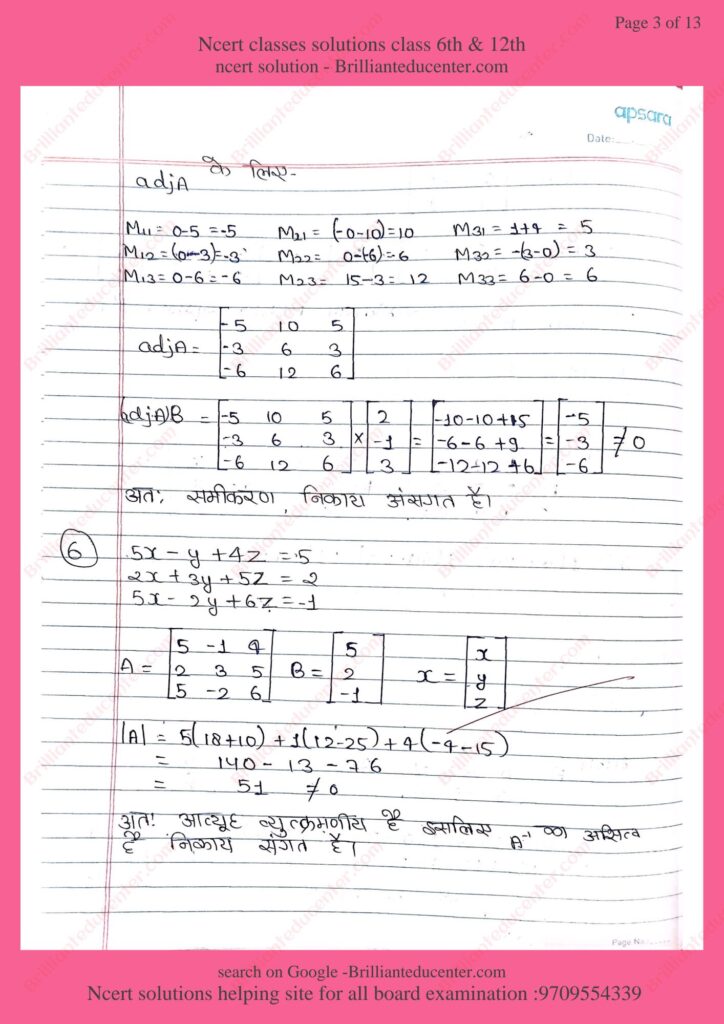 Page 3 of 13
Ncert classes solutions class 6th & 12th
ncert solution - Brillianteducenter.com
apsara
Date:
adjA के लिए-
M11 = 0-5 = -5 M21 = (-0-10)=10 M31 = 1+4 = 5
M12 = (0-3)=-3 M22 = 0-(-6)=6 M32 = -(3-0) = 3
M13 = 0-6 = -6 M23 = 15-3 = 12 M33 = 6-0 = 6
adjA = [-5 10 5
-3 6 3
-6 12 6]
(adjA)B = [-5 10 5 × [2 = [-10-10+15 = [-5 ≠ 0
-3 6 3 -1 -6-6+9 -3
-6 12 6] 3] -12-12+6] -6]
अतः समीकरण निकाय अंसगत है।
6 5x - y + 4z = 5
2x + 3y + 5z = 2
5x - 2y + 6z = -1
A = [5 -1 4 B = [5 x = [x
2 3 5 2 y
5 -2 6] -1] z]
|A| = 5(18+10) + 1(12-25) + 4(-4-15)
= 140 - 13 - 76
= 51 ≠ 0
अतः आव्यूह व्युत्क्रमणीय है इसलिए A⁻¹ का असित्व
है निकाय संगत है।
Page No.
search on Google -Brillianteducenter.com
Ncert solutions helping site for all board examination :9709554339